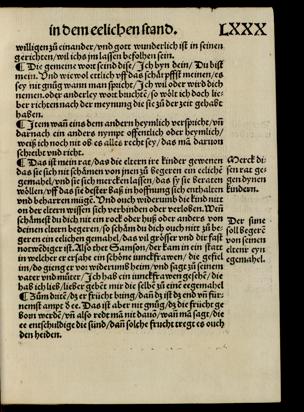 in dem eelichen stand. LXXX
willigen zu einander/vnd gott wunderlich ist in seinen
gerichten/wil ichs im lassen befolhen sein.
¶ Die gemeine wort seind dise/Ich byn dein/Du bist
mein. Vnd wie wol ettlich vff das schärpffst meinen/es
sey nit gnůg wann man spricht/Ich wil oder wird dich
nemen oder anderley wort bruchē/so wölt ich doch lie-
ber richten nach der meynung die sie zů der zeit gehabt
haben.
¶ Item wañ eins dem andern heymlich verspricht/vñ
darnach ein anders nympt offentlich oder heymlich/
weiß ich noch nit ob es alles recht sey/das mā daruon
schreibt vnd richt.
¶ Das ist mein rat/das die eltern ire kinder gewenen
das sie sich nit schämen von jnen zů begeren ein eelichē
gemahel/vnd sie sich mercken lassen/das sy sie beraten
wöllen/vff das sie dester baß in hoffnung sich enthalten
vnd beharren mügē. Vnd ouch widerumb die kind nitt
on der eltern wissen sich verbinden oder verloben. Mē
schämst du dich nit ein rock oder huß oder anders von
deinen eltern begeren/so schäm du dich ouch nitt zů be-
geren ein eelichen gemahel/das vil grösser vnd dir fast
notwēdiger ist. Also thet Samson/der kam in ein statt
in welcher er ersahe ein schöne iunckfrawen/die gefiel
im/do gieng er vor widerumb heim/vnd sagt zů seinem
vatter vnd můter/Ich hab ein iunckfrawen gesehē/die
hab ich lieb/lieber gebēt mir die selbē zů eine eegemahel
¶ Zům dritē/dz er frücht bring/dañ dz ist dz end vñ für-
nemst ampt d ee. Das ist aber nit gnůg/dz die frücht ge
born werdē/vñ also redt mā nit dauō/wañ mā sagt/die
ee entschuldige die sünd/dañ solche frucht tregt es ouch
den heiden.
Merck di-
sin rat ge-
gen dynen
kindern.
Der sune
soll begerē
von seinen
eltern eyn
eegemahel.